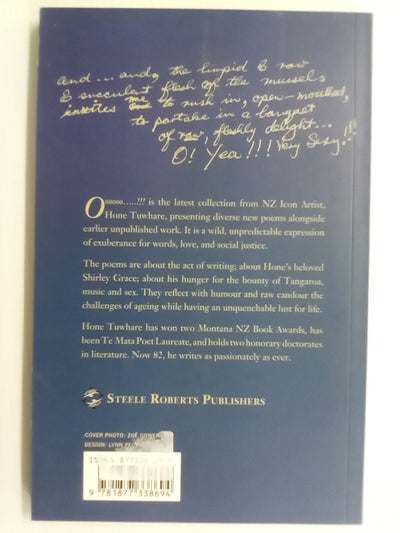 and... and, the limpid & raw
& succulent flesh of the mussels
invites me to rush in, open-mouthed,
to partake in a banquet
of raw, fleshly delight...
O! Yea!!! Very Sexy!!!
Oooooo......!!! is the latest collection from NZ Icon Artist,
Hone Tuwhare, presenting diverse new poems alongside
earlier unpublished work. It is a wild, unpredictable expression
of exuberance for words, love, and social justice.
The poems are about the act of writing; about Hone's beloved
Shirley Grace; about his hunger for the bounty of Tangaroa,
music and sex. They reflect with humour and raw candour the
challenges of ageing while having an unquenchable lust for life.
Hone Tuwhare has won two Montana NZ Book Awards, has
been Te Mata Poet Laureate, and holds two honorary doctorates
in literature. Now 82, he writes as passionately as ever.
STEELE ROBERTS PUBLISHERS
COVER PHOTO: ZOË
DESIGN: LYNN
ISBN 1
9 781877 338694